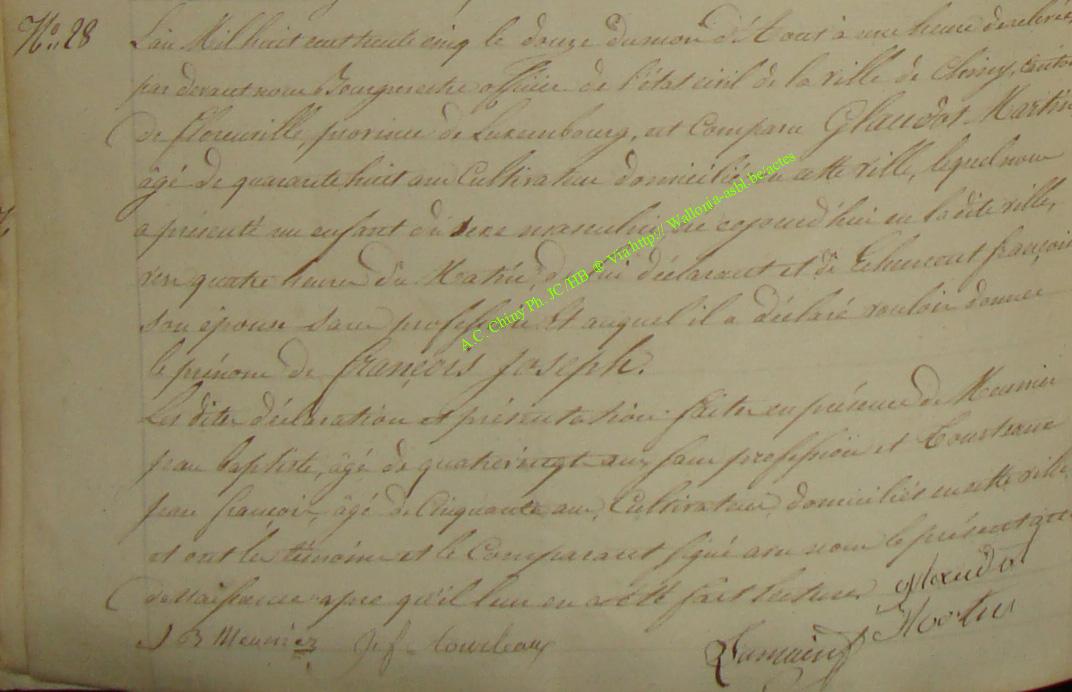 No. 28
L'an Mil huit cent trente cinq le douze du mois d'Aout à une heure de relevée,
par devant nous Bourgmestre officier de l'état civil de la ville de Chiny, canton
de florenville, province de Luxembourg, est comparu Glaudot Martin
âgé de quarante huit ans Cultivateur domicilié en cette ville, lequel nous
a présenté un enfant du sexe masculin, né cejourd'hui en la dite ville,
vers quatre heures du Matin, de lui déclarant et de françoise
son épouse sans profession et auquel il a déclaré vouloir donner
le prénom de françois Joseph.
Les dites déclaration et présentation faites en présence de Meunier
jean baptiste, âgé de quatrevingt ans sans profession et Tourteaux
jean françois, âgé de Cinquante ans, Cultivateur, domiciliés en cette ville
et ont les témoins et le Comparant signé avec nous le présent acte
de naissance après qu'il leur en a été fait lecture.
J B Meunier
J. f. tourteaux
A.C. Chiny Ph. JC /HB ® Via http:// Wallonia-asbl.be/actes